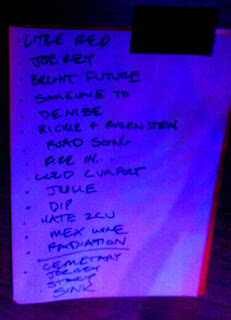 · LITTLE RED
· JOE REY
· BRIGHT FUTURE
· SOMEONE TO
· DENISE
· RICHIE + RUBENSTEIN
ROAD SONG
· FIRE IN..
· COLD COMFORT
· JULIE
· DIP
· HATE 2CU
· MEX WINE
· RADIATION
· CEMETARY
STACY
SINK